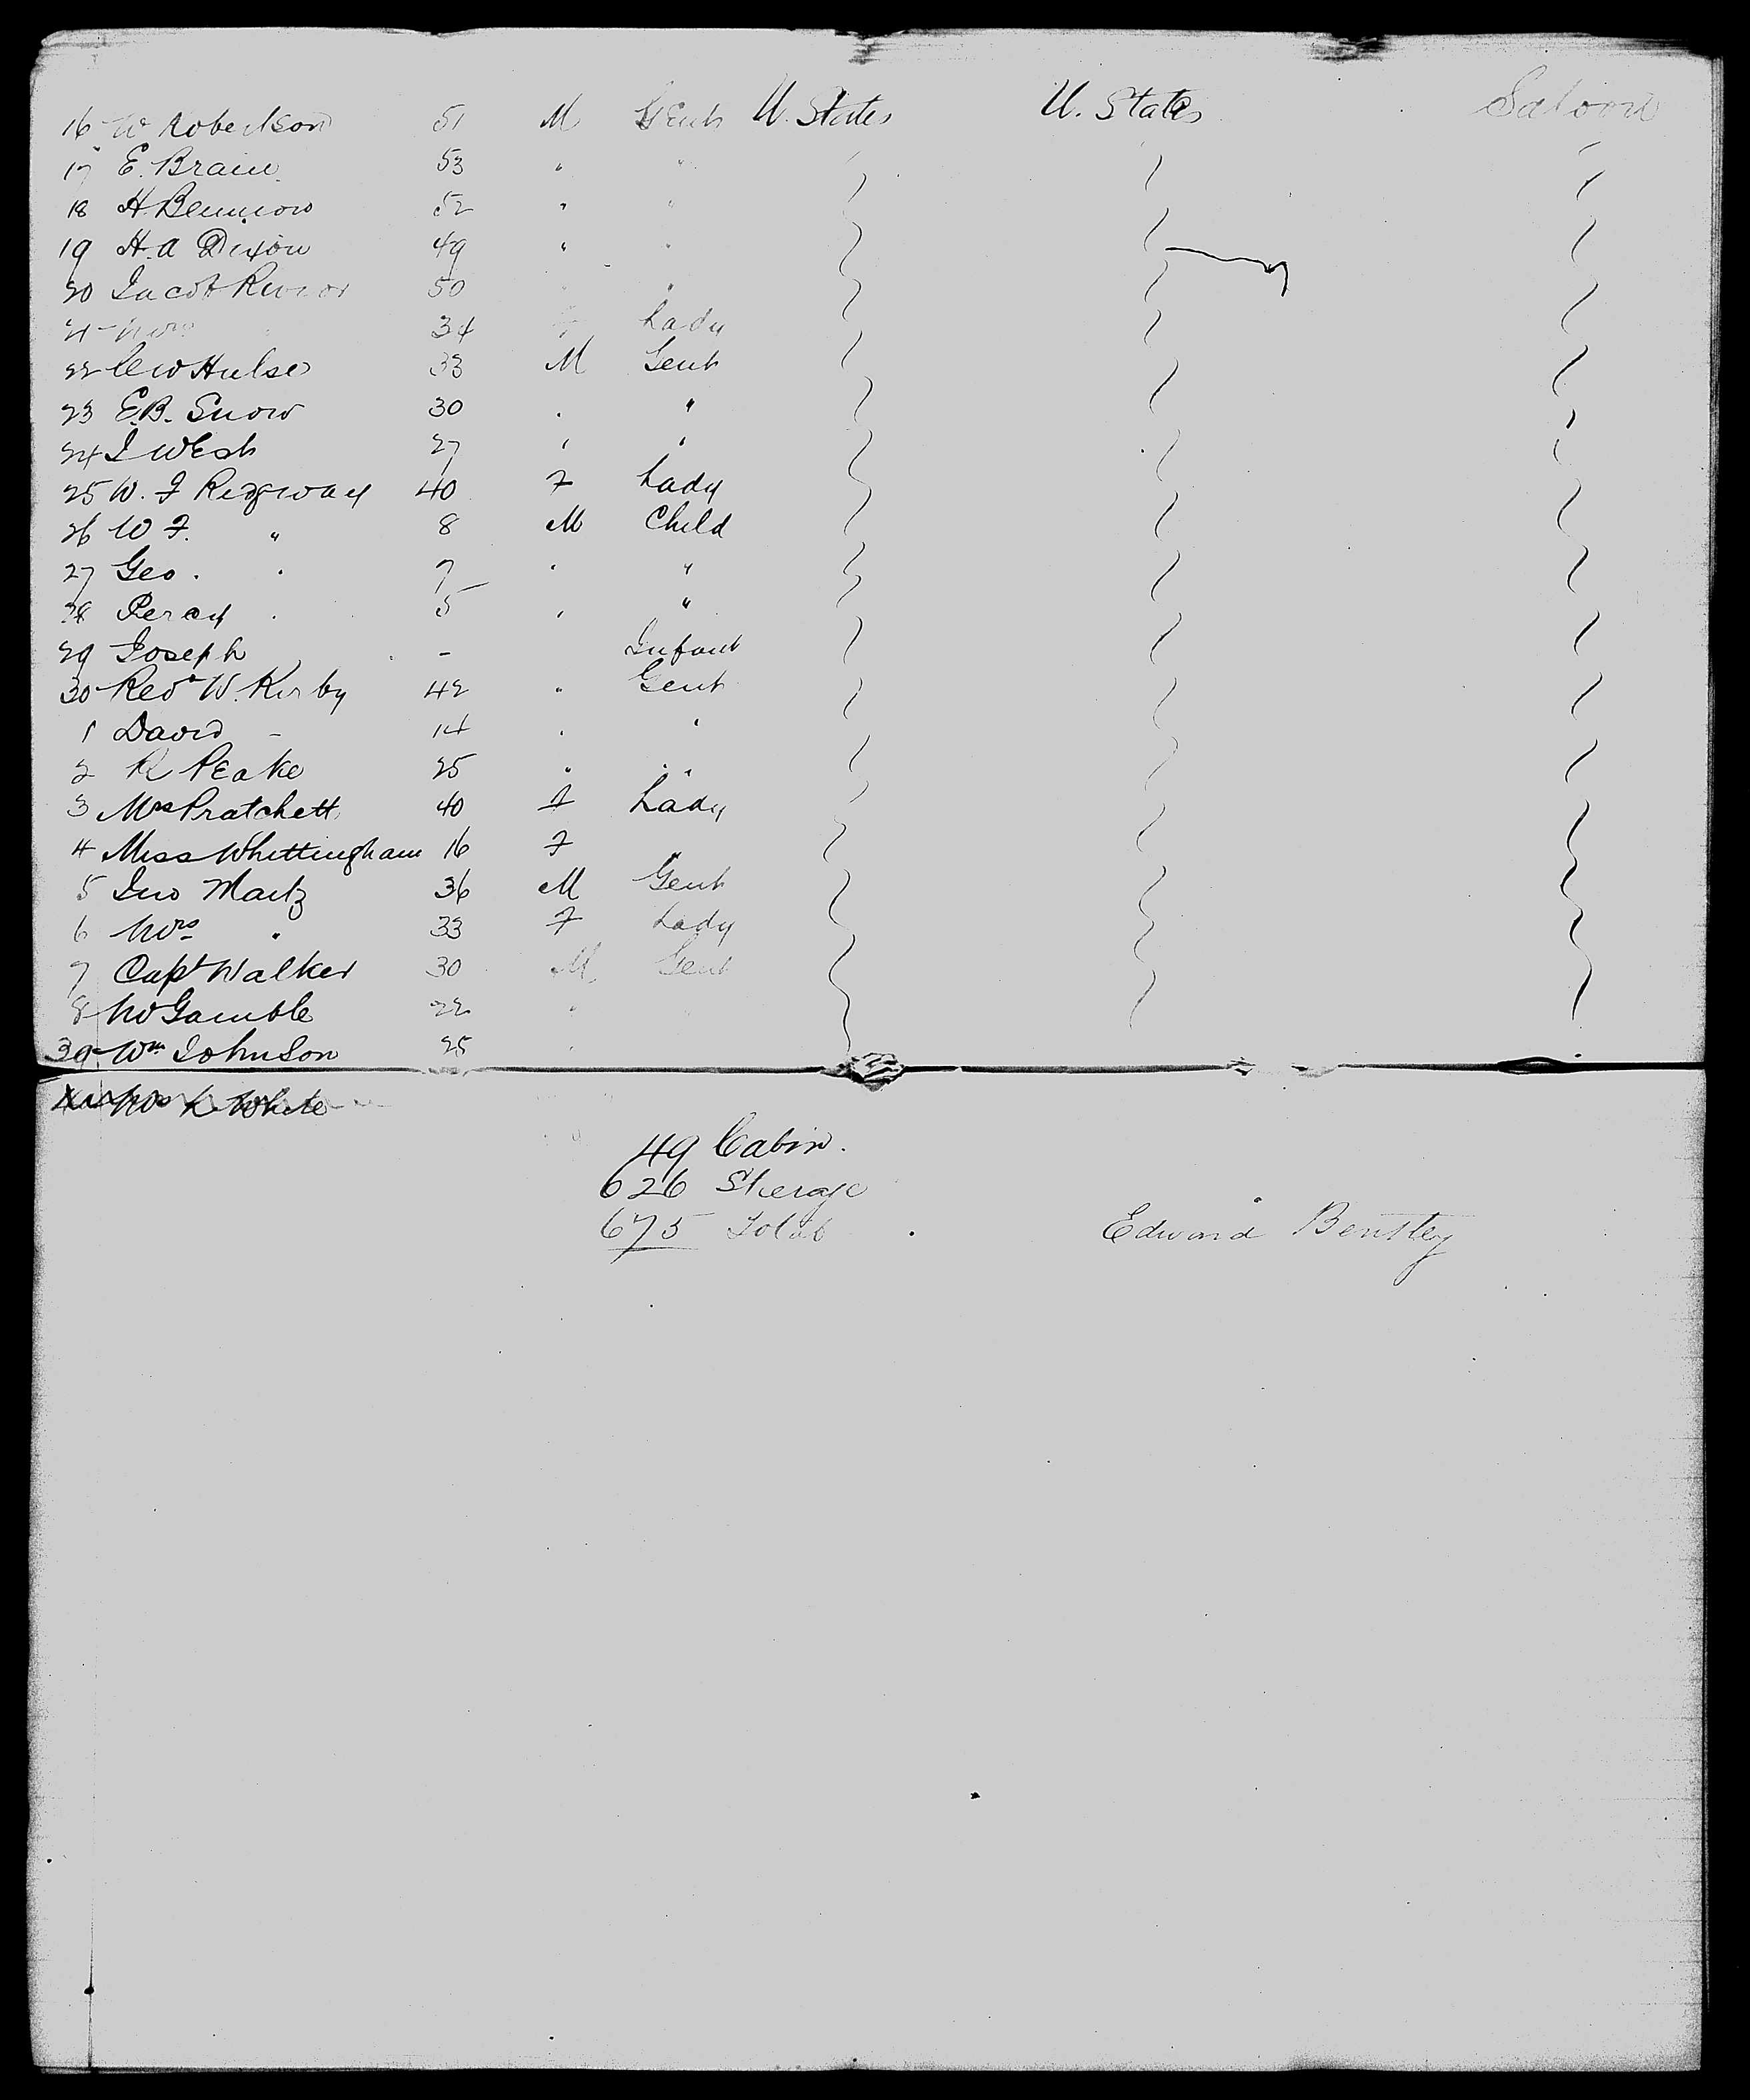 16 W Robertson 51 M Gent U. States U. States Saloon
17 E. Brain 53 " "
18 H Bennion 52 " "
19 H. A Dixon 49 " "
20 Jacob 50 " "
21 Mrs 34 F Lady
22 Hulse 33 M Gent
23 E.B. Snow 30 " "
24 J West 27 " "
25 W. F Ridgway 40 F Lady
26 W F. " 8 M Child
27 Geo. " 7 " "
28 Percy " 5 " "
29 Joseph - Infant
30 Revd W. Kirby 42 " Gent
1 David - 14 " "
2 R Peake 25 " "
3 Mrs Pratchett 40 F Lady
4 Miss Whittingham 16 F "
5 Jno Martz 36 M Gent
6 Mrs " 33 F Lady
7 Capt Walker 30 M Gent
8 Gamble 22 "
39 Wm Johnson 25 "
White
49 Cabin.
626 Sterage
675 Total
Edward Bentley